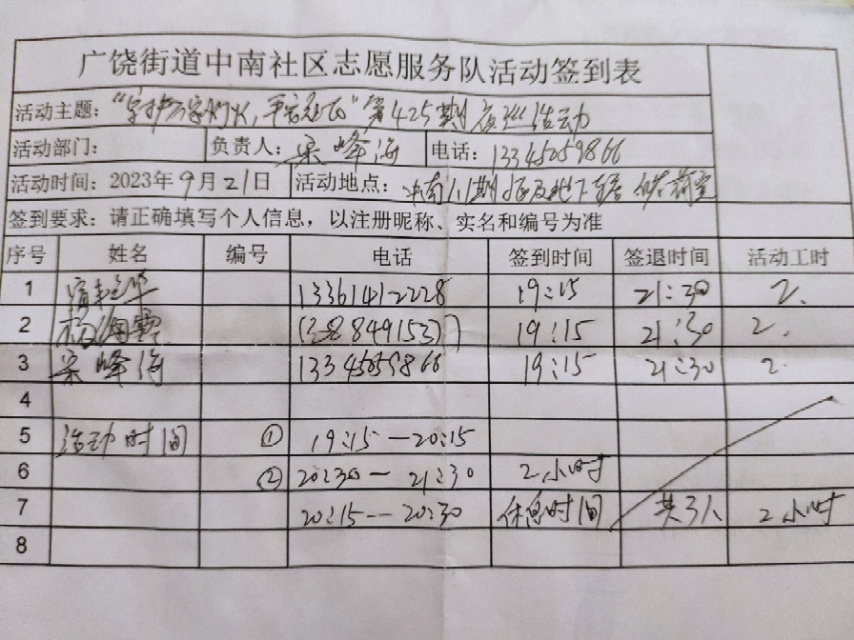 广饶街道中南社区志愿服务队活动签到表
活动主题：“守护万家灯火，平安" 第425期夜巡活动
活动部门： 负责人：梁峰海 电话：13345059866
活动时间：2023年9月21日 活动地点：中南1.1期 及地下车
签到要求：请正确填写个人信息，以注册昵称、实名和编号为准
序号 姓名 编号 电话 签到时间 签退时间 活动工时
1 13361412228 19:15 21:30 2.
2 杨海霞 19:15 21:30 2.
3 梁峰海 13345059866 19:15 21:30 2.
4
5 活动时间 ① 19:15—20:15
6 ② 20:30— 21:30 2小时
7 20:15--20:30 休息时间 共3人 2小时
8